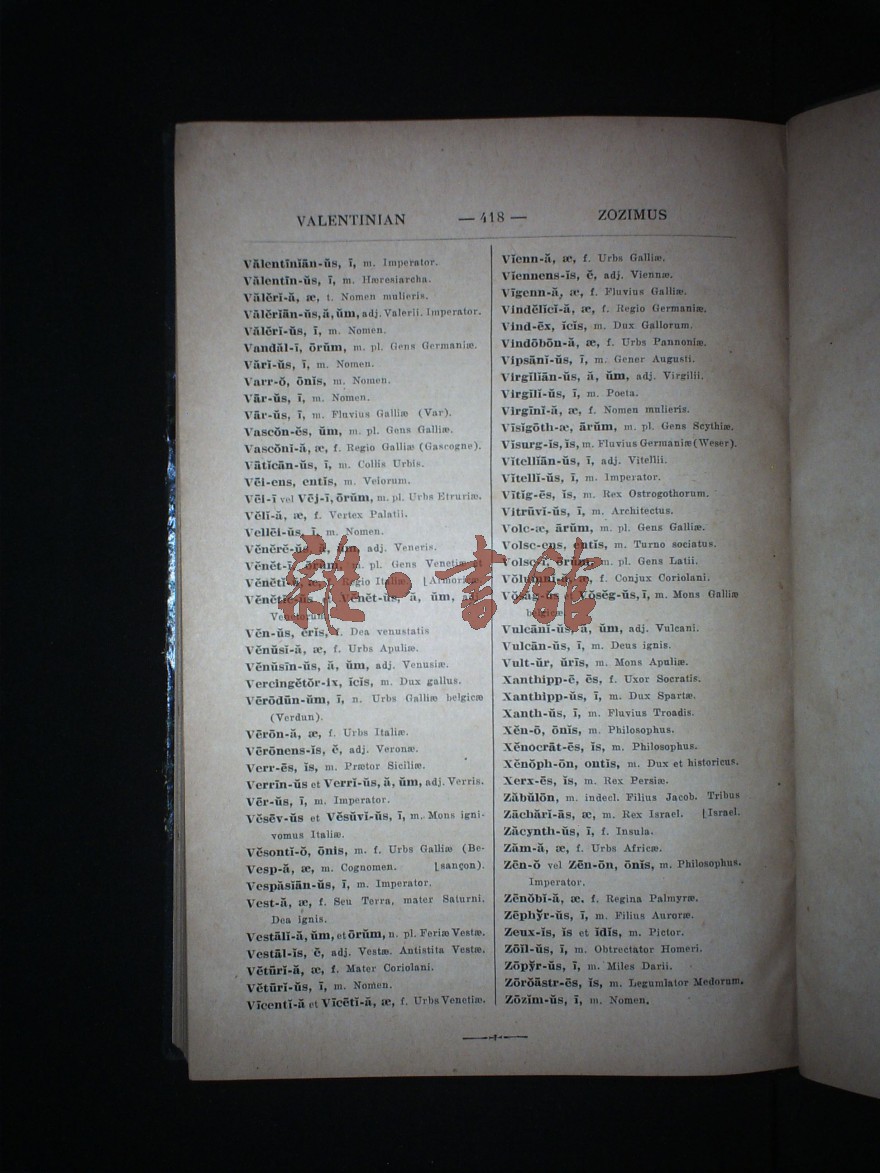 VALENTINIAN — 418 — ZOZIMUS
Vălentĭnĭān-ŭs, ī, m. Imperator.
Vălentīn-ŭs, ī, m. Hæresiarcha.
Vălĕrĭ-ă, æ, f. Nomen mulieris.
Vălĕrĭān-ŭs, ă, ŭm, adj. Valerii. Imperator.
Vălĕrĭ-ŭs, ī, m. Nomen.
Vandăl-ī, ōrŭm, m. pl. Gens Germaniæ.
Vārĭ-ŭs, ī, m. Nomen.
Varr-ŏ, ōnĭs, m. Nomen.
Vār-ŭs, ī, m. Nomen.
Vār-ŭs, ī, m. Fluvius Galliæ (Var).
Vascŏn-ĕs, ŭm, m. pl. Gens Galliæ.
Vascŏnĭ-ă, æ, f. Regio Galliæ (Gascogne).
Vātĭcān-ŭs, ī, m. Collis Urbis.
Vēi-ens, entĭs, m. Veiorum.
Vēi-ī vel Vēj-ī, ōrŭm, m. pl. Urbs Etruriæ.
Vĕlĭ-ă, æ, f. Vertex Palatii.
Vellēi-ŭs, ī, m. Nomen.
Vĕnĕrĕ-ŭs, ă, ŭm, adj. Veneris.
Vĕnĕt-ī, ōrŭm, m. pl. Gens Venetiæ et
Vĕnĕtĭ-ă, æ, f. Regio Italiæ. [Armoricæ.
Vĕnĕtĭc-ŭs et Vĕnĕt-ŭs, ă, ŭm, adj.
Venetorum.
Vĕn-ŭs, ĕrĭs, f. Dea venustatis
Vĕnŭsĭ-ă, æ, f. Urbs Apuliæ.
Vĕnŭsīn-ŭs, ă, ŭm, adj. Venusiæ.
Vercingĕtŏr-ix, ĭcĭs, m. Dux gallus.
Vĕrŏdūn-ŭm, ī, n. Urbs Galliæ belgicæ
(Verdun).
Vērōn-ă, æ, f. Urbs Italiæ.
Vērōnens-ĭs, ĕ, adj. Veronæ.
Verr-ēs, ĭs, m. Prætor Siciliæ.
Verrīn-ŭs et Verrĭ-ŭs, ă, ŭm, adj. Verris.
Vēr-ŭs, ī, m. Imperator.
Vĕsēv-ŭs et Vĕsŭvĭ-ŭs, ī, m. Mons igni-
vomus Italiæ.
Vĕsontĭ-ŏ, ōnĭs, m. f. Urbs Galliæ (Be-
Vesp-ă, æ, m. Cognomen. [sançon).
Vespăsĭān-ŭs, ī, m. Imperator.
Vest-ă, æ, f. Seu Terra, mater Saturni.
Dea ignis.
Vestālĭ-ă, ŭm, et ōrŭm, n. pl. Feriæ Vestæ.
Vestāl-ĭs, ĕ, adj. Vestæ. Antistita Vestæ.
Vĕtŭrĭ-ă, æ, f. Mater Coriolani.
Vĕtŭrĭ-ŭs, ī, m. Nomen.
Vīcentĭ-ă et Vīcĕtĭ-ă, æ, f. Urbs Venetiæ.
Vĭenn-ă, æ, f. Urbs Galliæ.
Vĭennens-ĭs, ĕ, adj. Viennæ.
Vĭgenn-ă, æ, f. Fluvius Galliæ.
Vindĕlĭcĭ-ă, æ, f. Regio Germaniæ.
Vind-ēx, ĭcĭs, m. Dux Gallorum.
Vindŏbŏn-ă, æ, f. Urbs Pannoniæ.
Vipsānĭ-ŭs, ī, m. Gener Augusti.
Virgĭlĭān-ŭs, ă, ŭm, adj. Virgilii.
Virgĭlĭ-ŭs, ī, m. Poeta.
Virgīnĭ-ă, æ, f. Nomen mulieris.
Vĭsĭgŏth-æ, ārŭm, m. pl. Gens Scythiæ.
Vĭsurg-ĭs, ĭs, m. Fluvius Germaniæ (Weser).
Vĭtellĭān-ŭs, ī, adj. Vitellii.
Vĭtellĭ-ŭs, ī, m. Imperator.
Vĭtĭg-ēs, ĭs, m. Rex Ostrogothorum.
Vĭtrŭvĭ-ŭs, ī, m. Architectus.
Volc-æ, ārŭm, m. pl. Gens Galliæ.
Volsc-ens, entĭs, m. Turno sociatus.
Volsc-ī, ōrŭm, m. pl. Gens Latii.
Vŏlumnĭ-ă, æ, f. Conjux Coriolani.
Vŏsăg-ŭs Vŏsĕg-ŭs, ī, m. Mons Galliæ
belgicæ.
Vulcānĭ-ŭs, ă, ŭm, adj. Vulcani.
Vulcān-ŭs, ī, m. Deus ignis.
Vult-ŭr, ŭrĭs, m. Mons Apuliæ.
Xanthipp-ē, ēs, f. Uxor Socratis.
Xanthipp-ŭs, ī, m. Dux Spartæ.
Xanth-ŭs, ī, m. Fluvius Troadis.
Xĕn-ŏ, ōnĭs, m. Philosophus.
Xĕnocrăt-ēs, ĭs, m. Philosophus.
Xĕnŏph-ōn, ontĭs, m. Dux et historicus.
Xerx-ēs, ĭs, m. Rex Persiæ.
Zăbŭlōn, m. indecl. Filius Jacob. Tribus
Zăchărĭ-ās, æ, m. Rex Israel. [Israel.
Zăcynth-ŭs, ī, f. Insula.
Zăm-ă, æ, f. Urbs Africæ.
Zēn-ŏ vel Zēn-ōn, ōnĭs, m. Philosophus.
Imperator.
Zēnŏbĭ-ă, æ. f. Regina Palmyræ.
Zĕphy̆r-ŭs, ī, m. Filius Auroræ.
Zeux-ĭs, ĭs et ĭdĭs, m. Pictor.
Zōĭl-ŭs, ī, m. Obtrectator Homeri.
Zōpy̆r-ŭs, ī, m. Miles Darii.
Zōrŏăstr-ēs, ĭs, m. Legumlator Medorum.
Zōzĭm-ŭs, ī, m. Nomen.
雜·書館